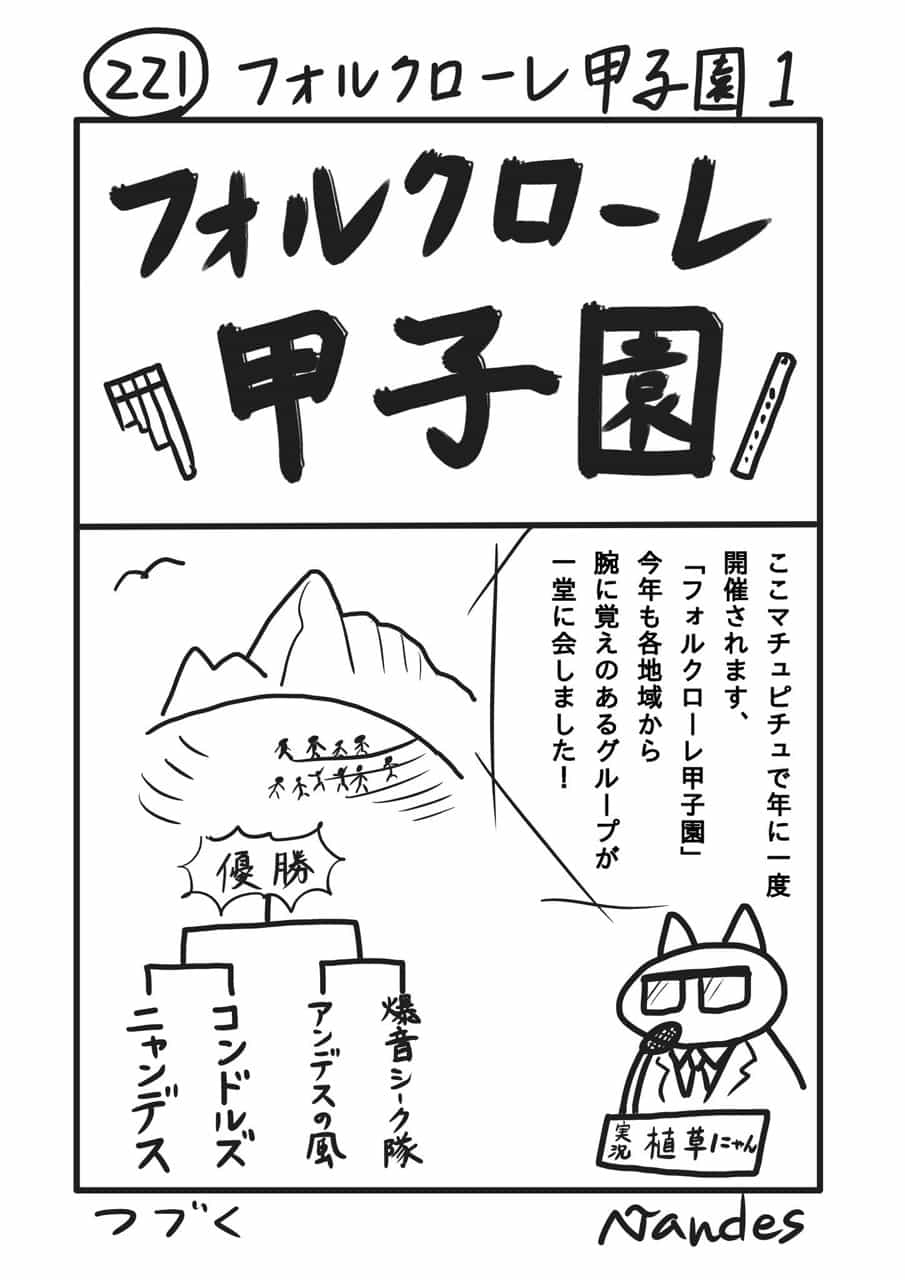 221 フォルクローレ甲子園1
フォルクローレ
甲子園
ここマチュピチュで年に一度
開催されます、
「フォルクローレ甲子園」
今年も各地域から
腕に覚えのあるグループが
一堂に会しました！
優勝
ニャンデス
コンドルズ
アンデスの風
爆音シーク隊
実況
植草にゃん
つづく
Nandes